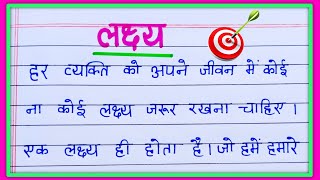 लक्ष्य
हर व्यक्ति को अपने जीवन में कोई
ना कोई लक्ष्य जरूर रखना चाहिए ।
एक लक्ष्य ही होता है। जो हमें हमारे